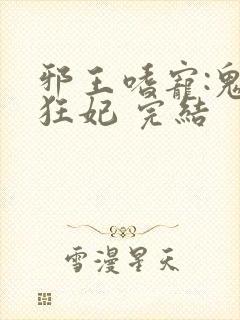 邪王嗜寵:鬼
狂妃 完結
雪漫星天